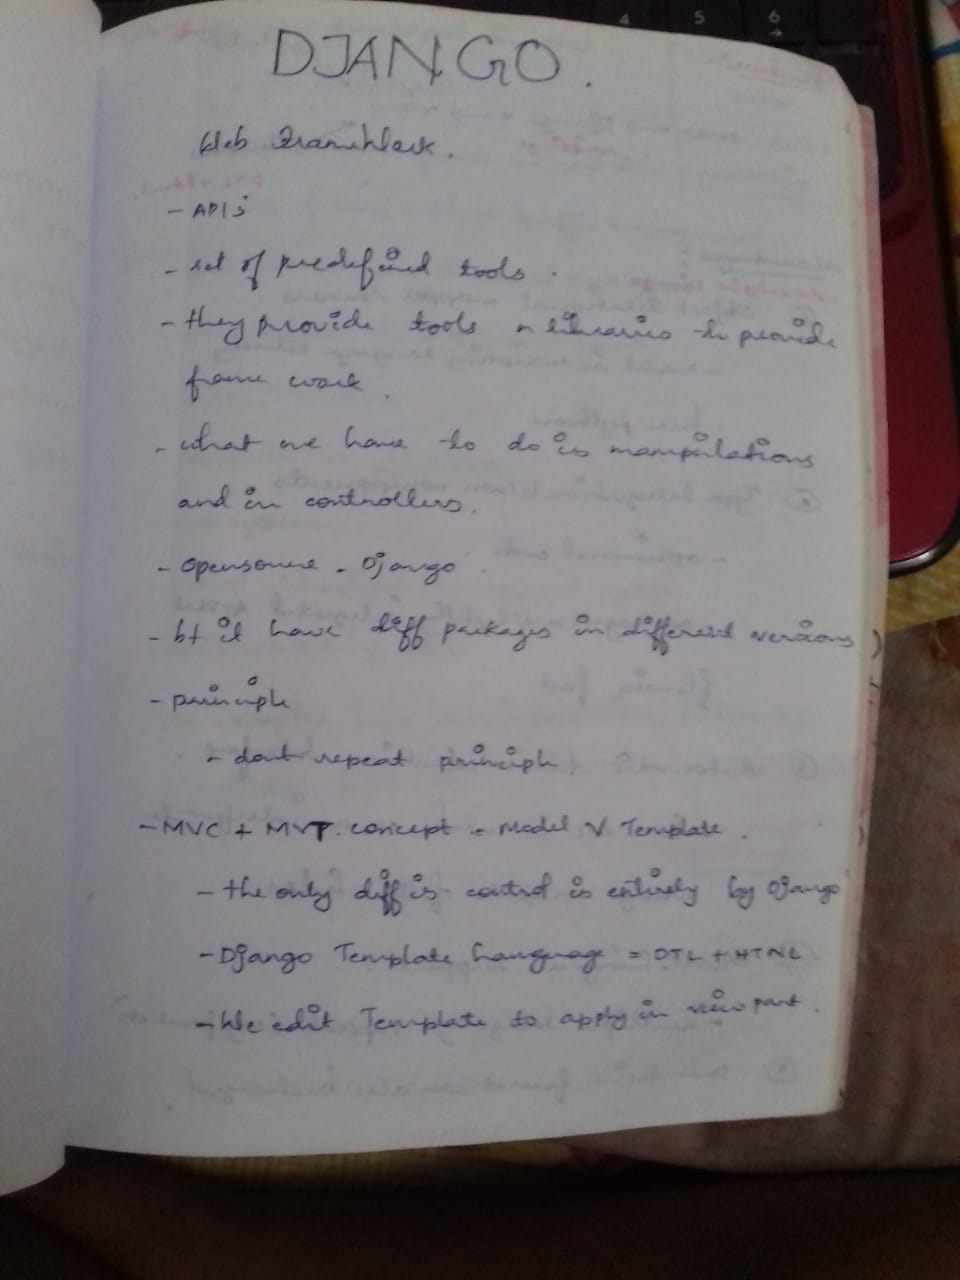 DJANGO.
Web Framework.
- APIs
- set of predefined tools.
- they provide tools n libraries to provide
frame work.
- what we have to do is manipulations
and in controllers.
- opensource - Django.
- bt it have diff packages in different versions
- principle
- dont repeat principle
- MVC + MVT. concept = Model V Template.
- the only diff is control is entirely by Django
- Django Template Language = DTL + HTML
- We edit Template to apply in view part.
4 5 6